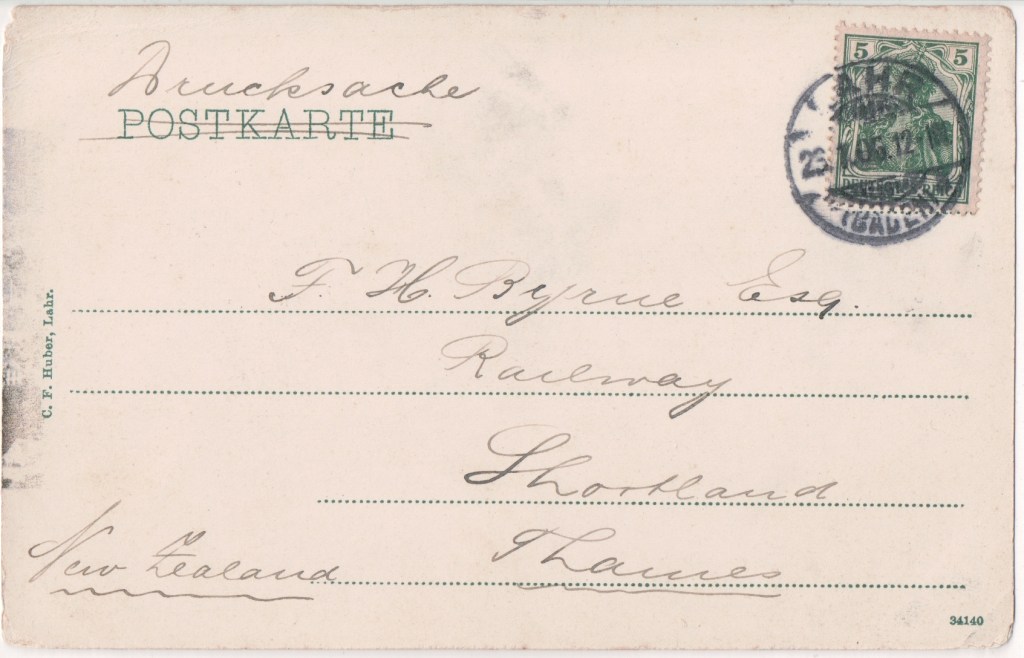 Drucksache
POSTKARTE
5 5
LAHR
(BADEN)
F. H. Byrne Esq.
Railway
Shortland
Thames
New Zealand
C. F. Huber, Lahr.
34140